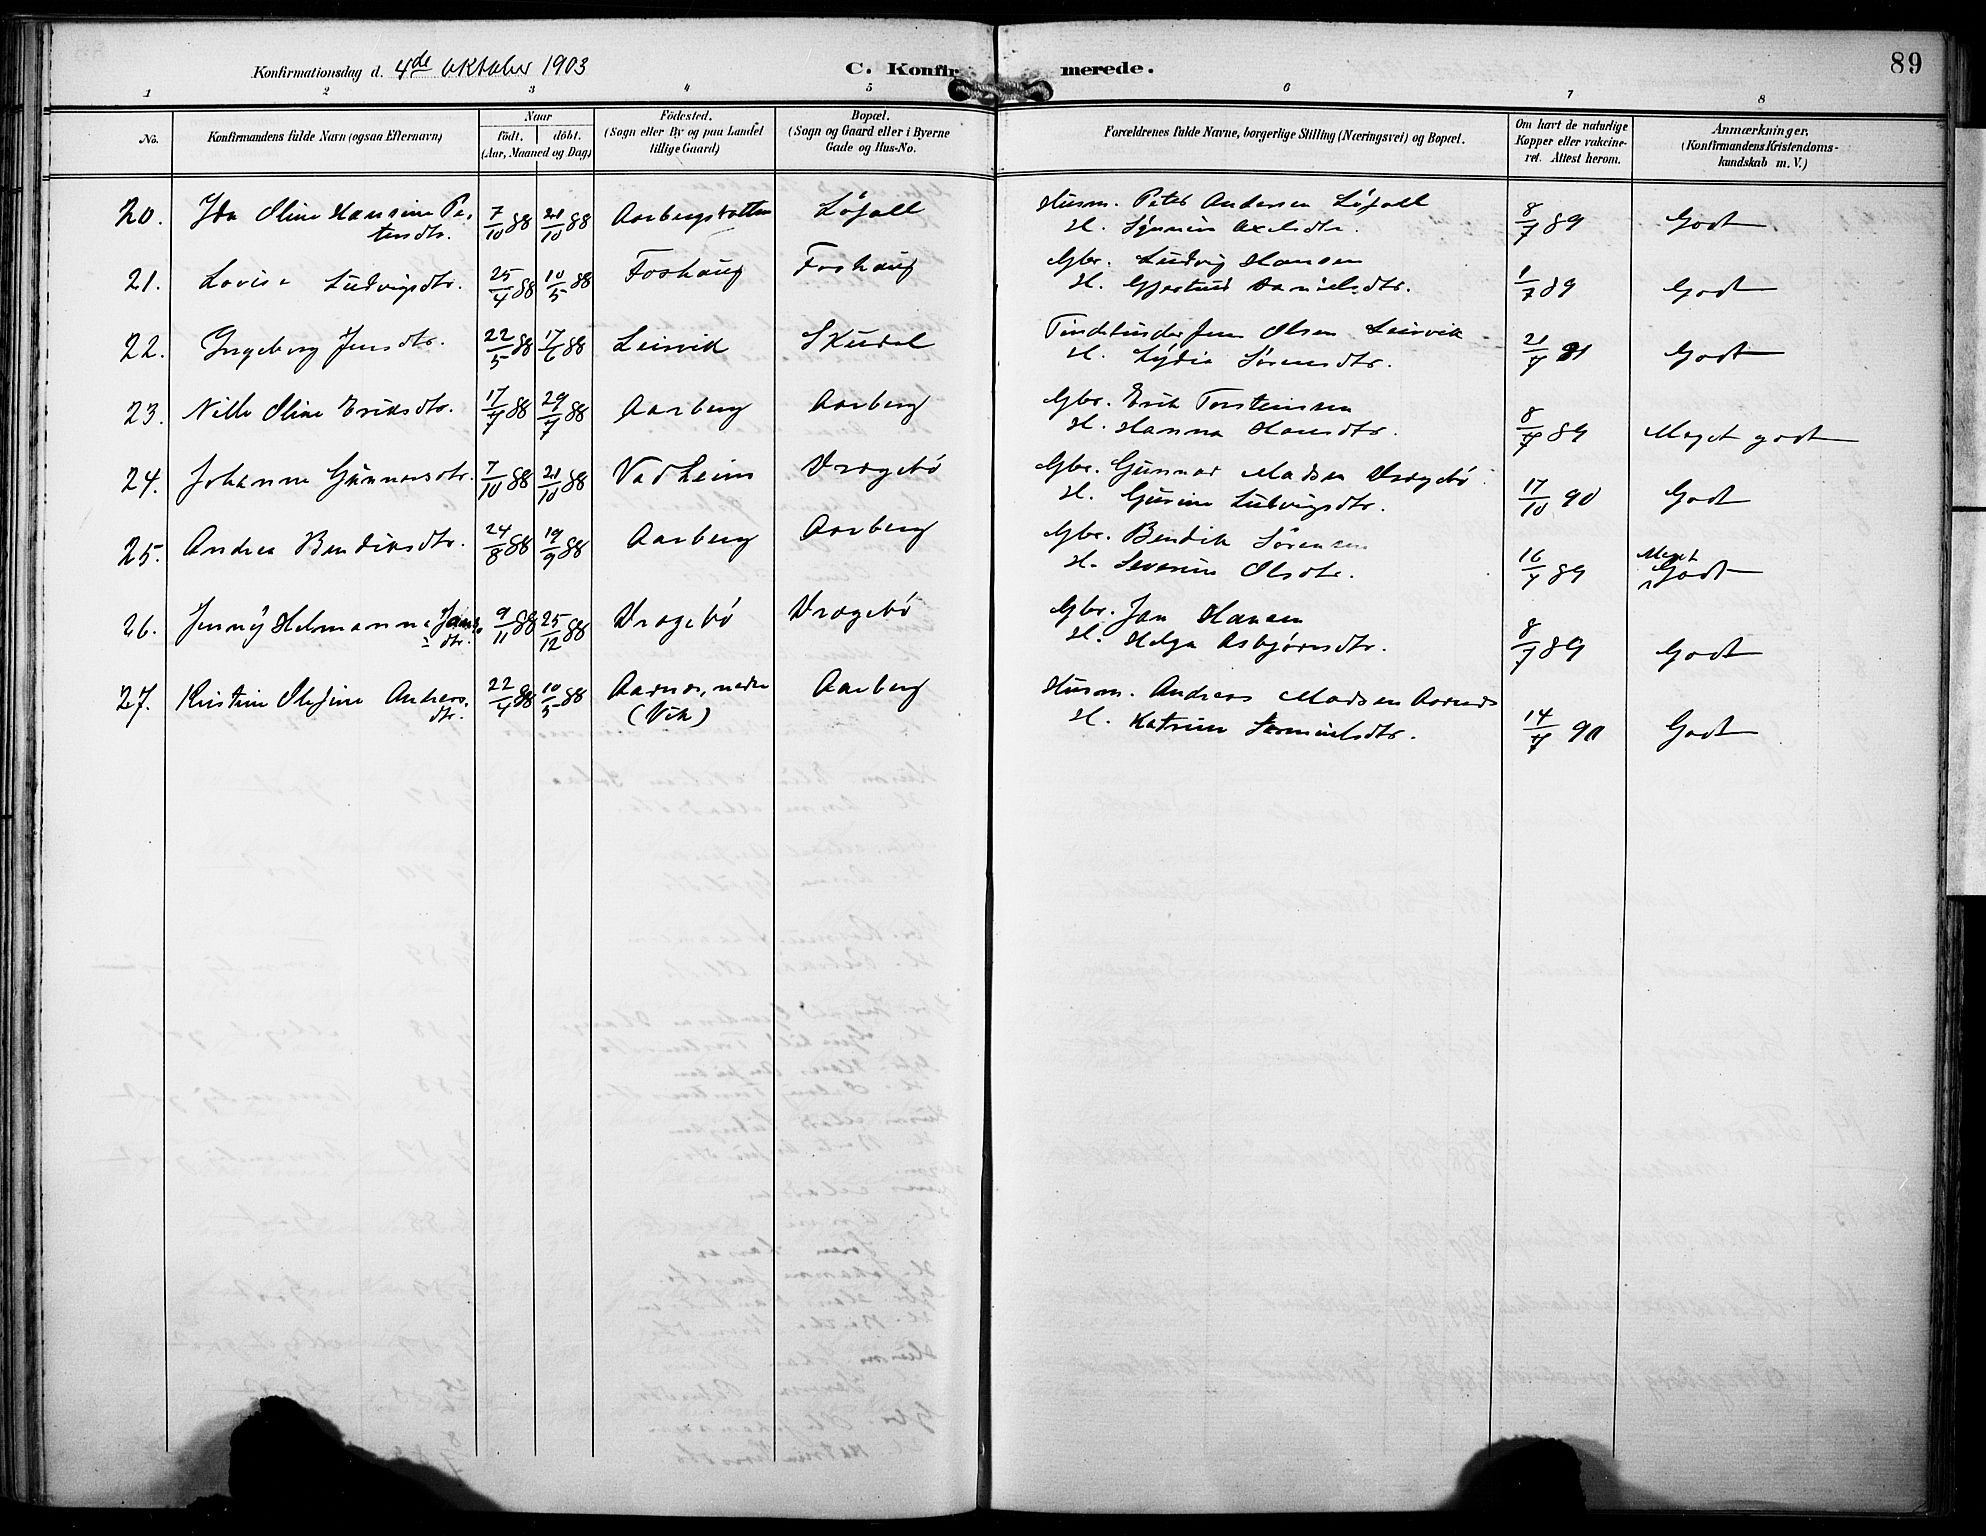 Konfirmationsdag d. 4de Oktober 1903 C. Konfirmerede. 89
1 2 3 4 5 6 7 8
No. Konfirmandens fulde Navn (ogsaa Efternavn) Naar födt. döbt. (Aar, Maaned og Dag) Födested. (Sogn eller By og paa Landet tillige Gaard) Bopæl. (Sogn og Gaard eller i Byerne Gade og Hus-No. Forældrenes fulde Navne, borgerlige Stilling (Næringsvei) og Bopæl. Om havt de naturlige Kopper eller vakcineret. Attest herom. Anmærkninger. (Konfirmandens Kristendomskundskab m. V.)
20. Ida Oline Hansine Petersdtr. 7/10 88 21/10 88 Løfall Husm. Peter Andersen Løfall 8/7 89 Godt
H. Axelsdtr.
21. Lovise Ludvigsdtr. 25/4 88 10/5 88 Foshaug Foshaug Gbr. Ludvig Hansen 1/7 89 Godt
H. Gjertrud Danielsdtr.
22. Ingeborg Jensdtr. 22/5 88 17/6 88 Leirvik Skudal Jens Olsen Leirvik Godt
H. Lydia Sørensdtr.
23. Nille Oline Eriksdtr. 17/7 88 29/7 88 Aarberg Aarberg Gbr. Erik Torsteinsen 8/7 89 Meget godt
H. Hanna Hansdtr.
24. Johanne Gunnarsdtr. 7/10 88 21/10 88 Vadheim Vragebø Gbr. Gunnar Madsen Vragebø 17/10 90 Godt
H. Gurine Ludvigsdtr.
25. Andrea Bendiksdtr. 24/8 88 19/9 88 Aarberg Aarberg Gbr. Bendik Sørensen 16/7 89 Meget Godt
H. Severine Olsdtr.
26. Jenny Helmanne Jansdtr. 9/11 88 25/12 88 Vragebø Vragebø Gbr. Jan Hansen 8/7 89 Godt
H. Helga Asbjørnsdtr.
27. Kristine Olefine Andreasdtr. 22/4 88 10/5 88 Aarnes, nedre (Vik) Aarberg Husm. Andreas Madsen Aarnes 14/7 90 Godt
H. Katrine